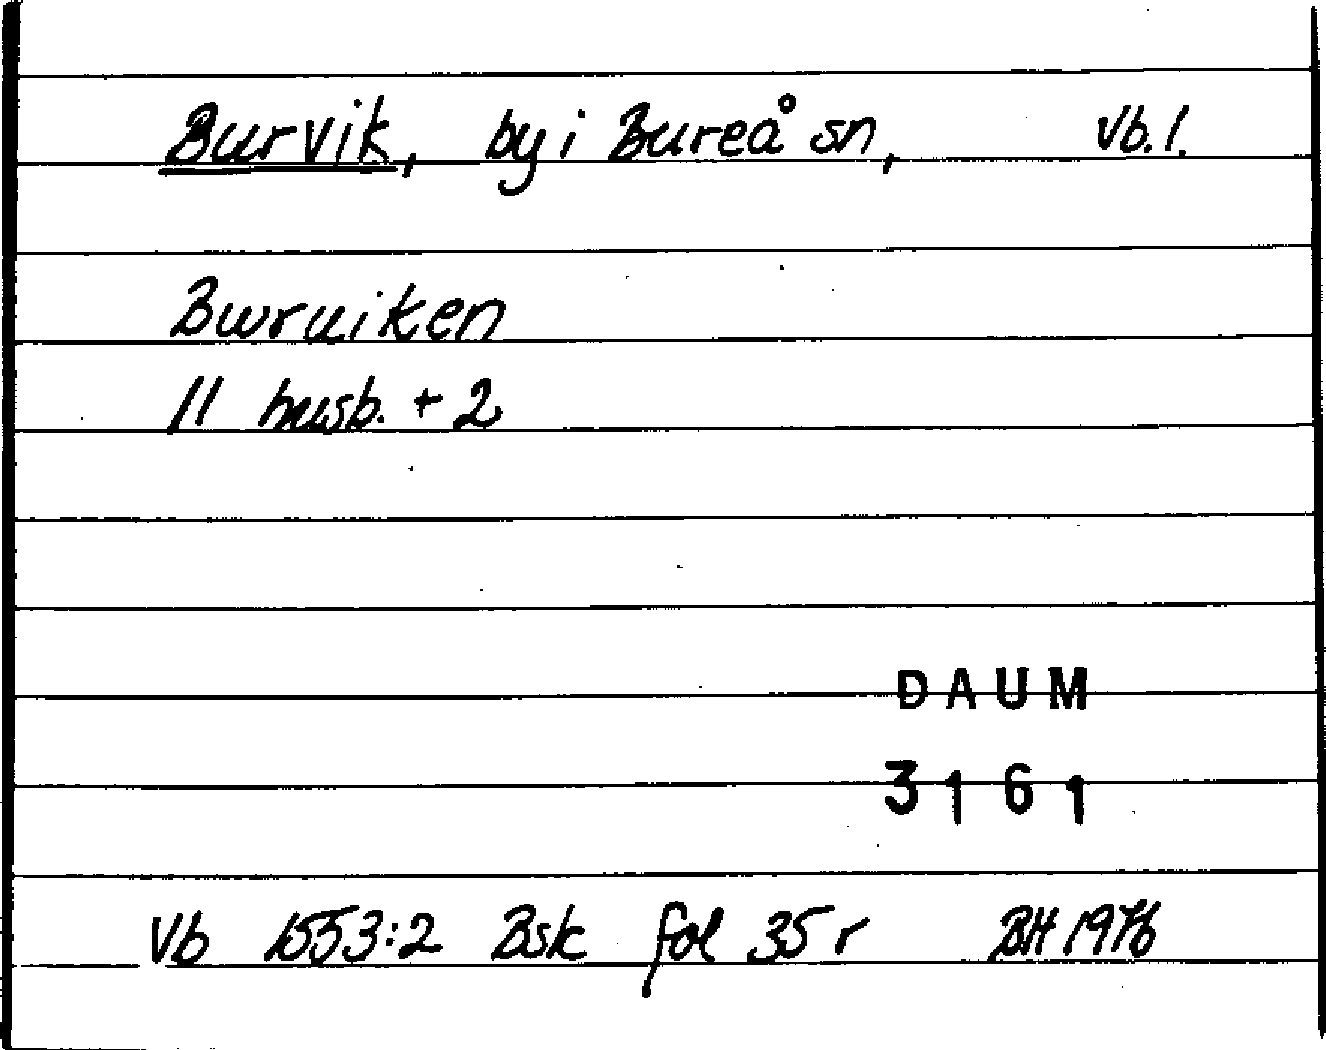 Burvik, by i Bureå sn, Vb. l.
Bwruiken
11 husb. + 2
DAUM
3161
Vb 1553:2 Bsk fol 35 r BH 1976